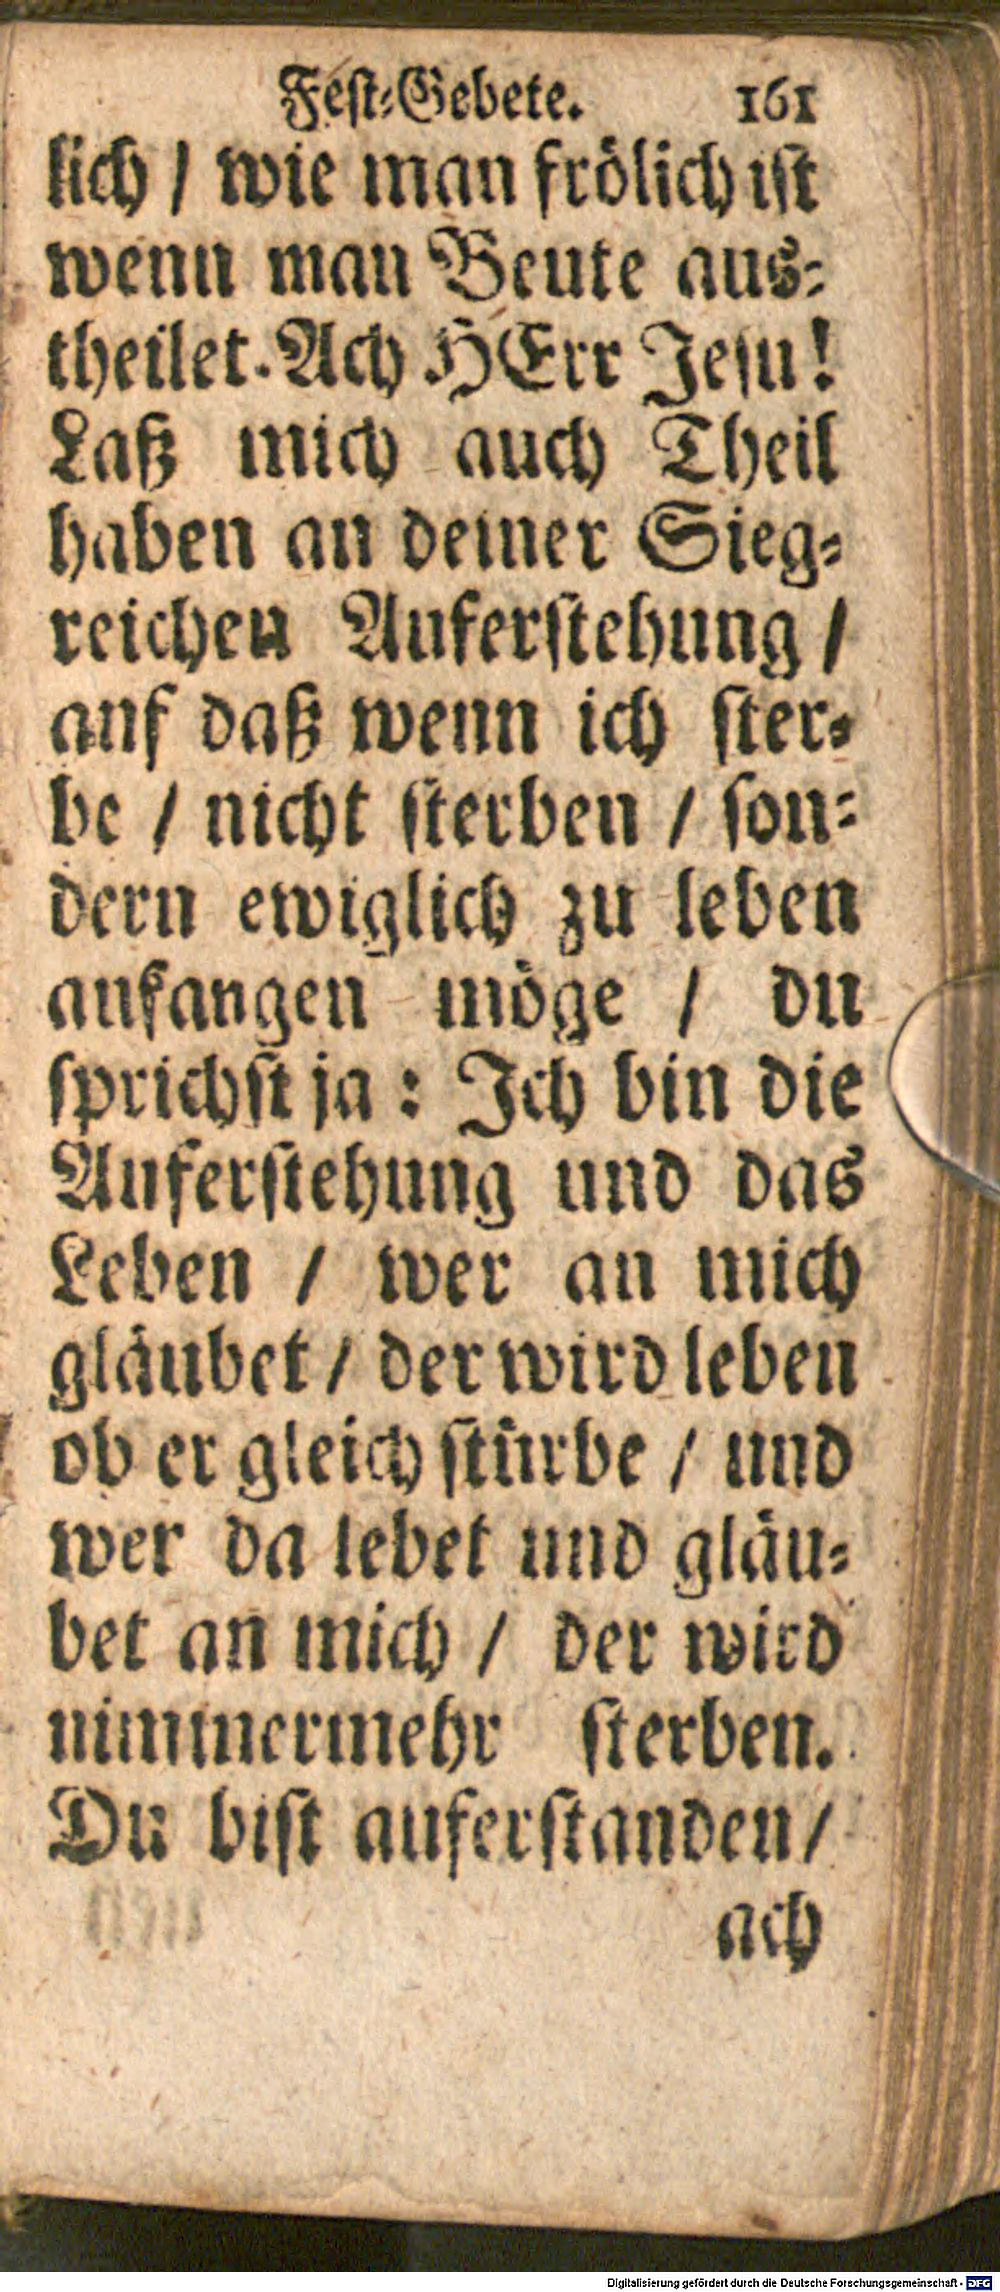 Fest-Gebete. 161
lich / wie man frölich ist
wenn man Beute aus-
theilet. Ach HErr Jesu!
Laß mich auch Theil
haben an deiner Sieg-
reichen Auferstehung /
auf daß wenn ich ster-
be / nicht sterben / son-
dern ewiglich zu leben
anfangen möge / du
sprichst ja : Ich bin die
Auferstehung und das
Leben / wer an mich
gläubet / der wird leben
ob er gleich stürbe / und
wer da lebet und gläu-
bet an mich / der wird
nimmermehr sterben.
Du bist auferstanden /
ach
Digitalisierung gefördert durch die Deutsche Forschungsgemeinschaft - DFG